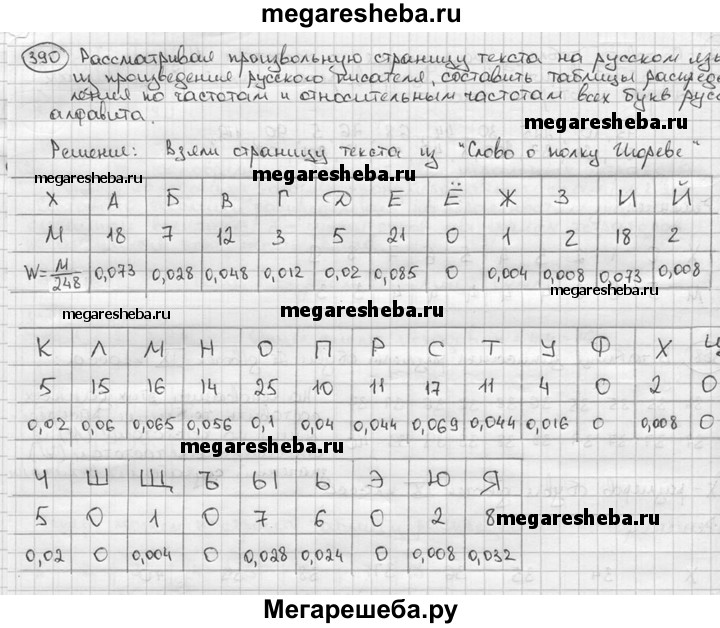 megaresheba.ru
390 Рассматривая произвольную страницу текста на русском язы
из произведения русского писателя, составить таблицы распреде
ления по частотам и относительным частотам всех букв русс
алфавита.
megaresheba.ru
Решение: Взяли страницу текста из "Слово о полку Игореве"
megaresheba.ru megaresheba.ru
X А Б В Г Д Е Ё Ж З И Й
М 18 7 12 3 5 21 0 1 2 18 2
W=M/248 0,073 0,028 0,048 0,012 0,02 0,085 0 0,004 0,008 0,073 0,008
megaresheba.ru
megaresheba.ru megaresheba.ru
К Л М Н О П Р С Т У Ф Х Ц
5 15 16 14 25 10 11 17 11 4 0 2 0
0,02 0,06 0,065 0,056 0,1 0,04 0,044 0,069 0,044 0,016 0 0,008 0
megaresheba.ru
Ч Ш Щ Ъ Ы Ь Э Ю Я
5 0 1 0 7 6 0 2 8
megaresheba.ru
0,02 0 0,004 0 0,028 0,024 0 0,008 0,032
Мегарешеба.ру